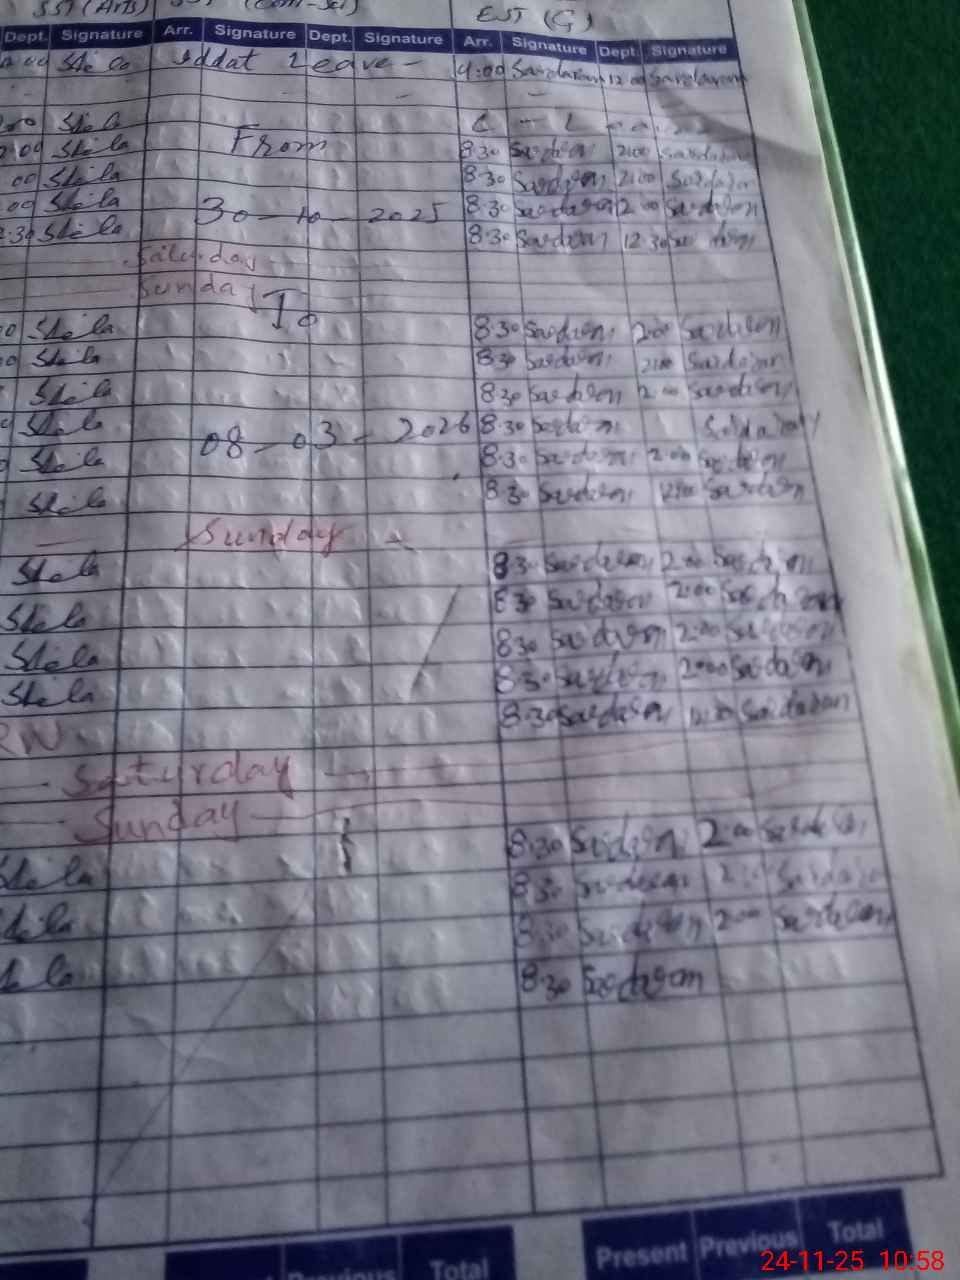 SST (Arts) SST (Com-Sci) EST (G)
Dept. Signature Arr. Signature Dept. Signature Arr. Signature Dept. Signature
Shela Iddat Leave - 9:00 Sardaran 12:00 Sardaran
Shela
:00 Shela From 8:30 Sardaran 2:00 Sardaran
:00 Shela 8:30 Sardaran 2:00 Sardaran
:00 Shela 30-10-2025 8:30 Sardaran 2:00 Sardaran
:30 Shela 8:30 Sardaran 12:30 Sardaran
Saturday
Sunday To
Shela 8:30 Sardaran 2:00 Sardaran
Shela 8:30 Sardaran 2:00 Sardaran
Shela 8:30 Sardaran 2:00 Sardaran
Shela 08-03-2026 8:30 Sardaran Sardaran
Shela 8:30 Sardaran 2:00 Sardaran
Shela 8:30 Sardaran 12:00 Sardaran
Sunday
Shela 8:30 Sardaran 2:00 Sardaran
Shela 8:30 Sardaran 2:00 Sardaran
Shela 8:30 Sardaran 2:00 Sardaran
Shela 8:30 Sardaran 2:00 Sardaran
8:30 Sardaran Sardaran
Saturday
Sunday
Shela 8:30 Sardaran 2:00 Sardaran
Shela 8:30 Sardaran Sardaran
Shela 8:30 Sardaran 2:00 Sardaran
8:30 Sardaran
Previous Total Present Previous Total
24-11-25 10:58